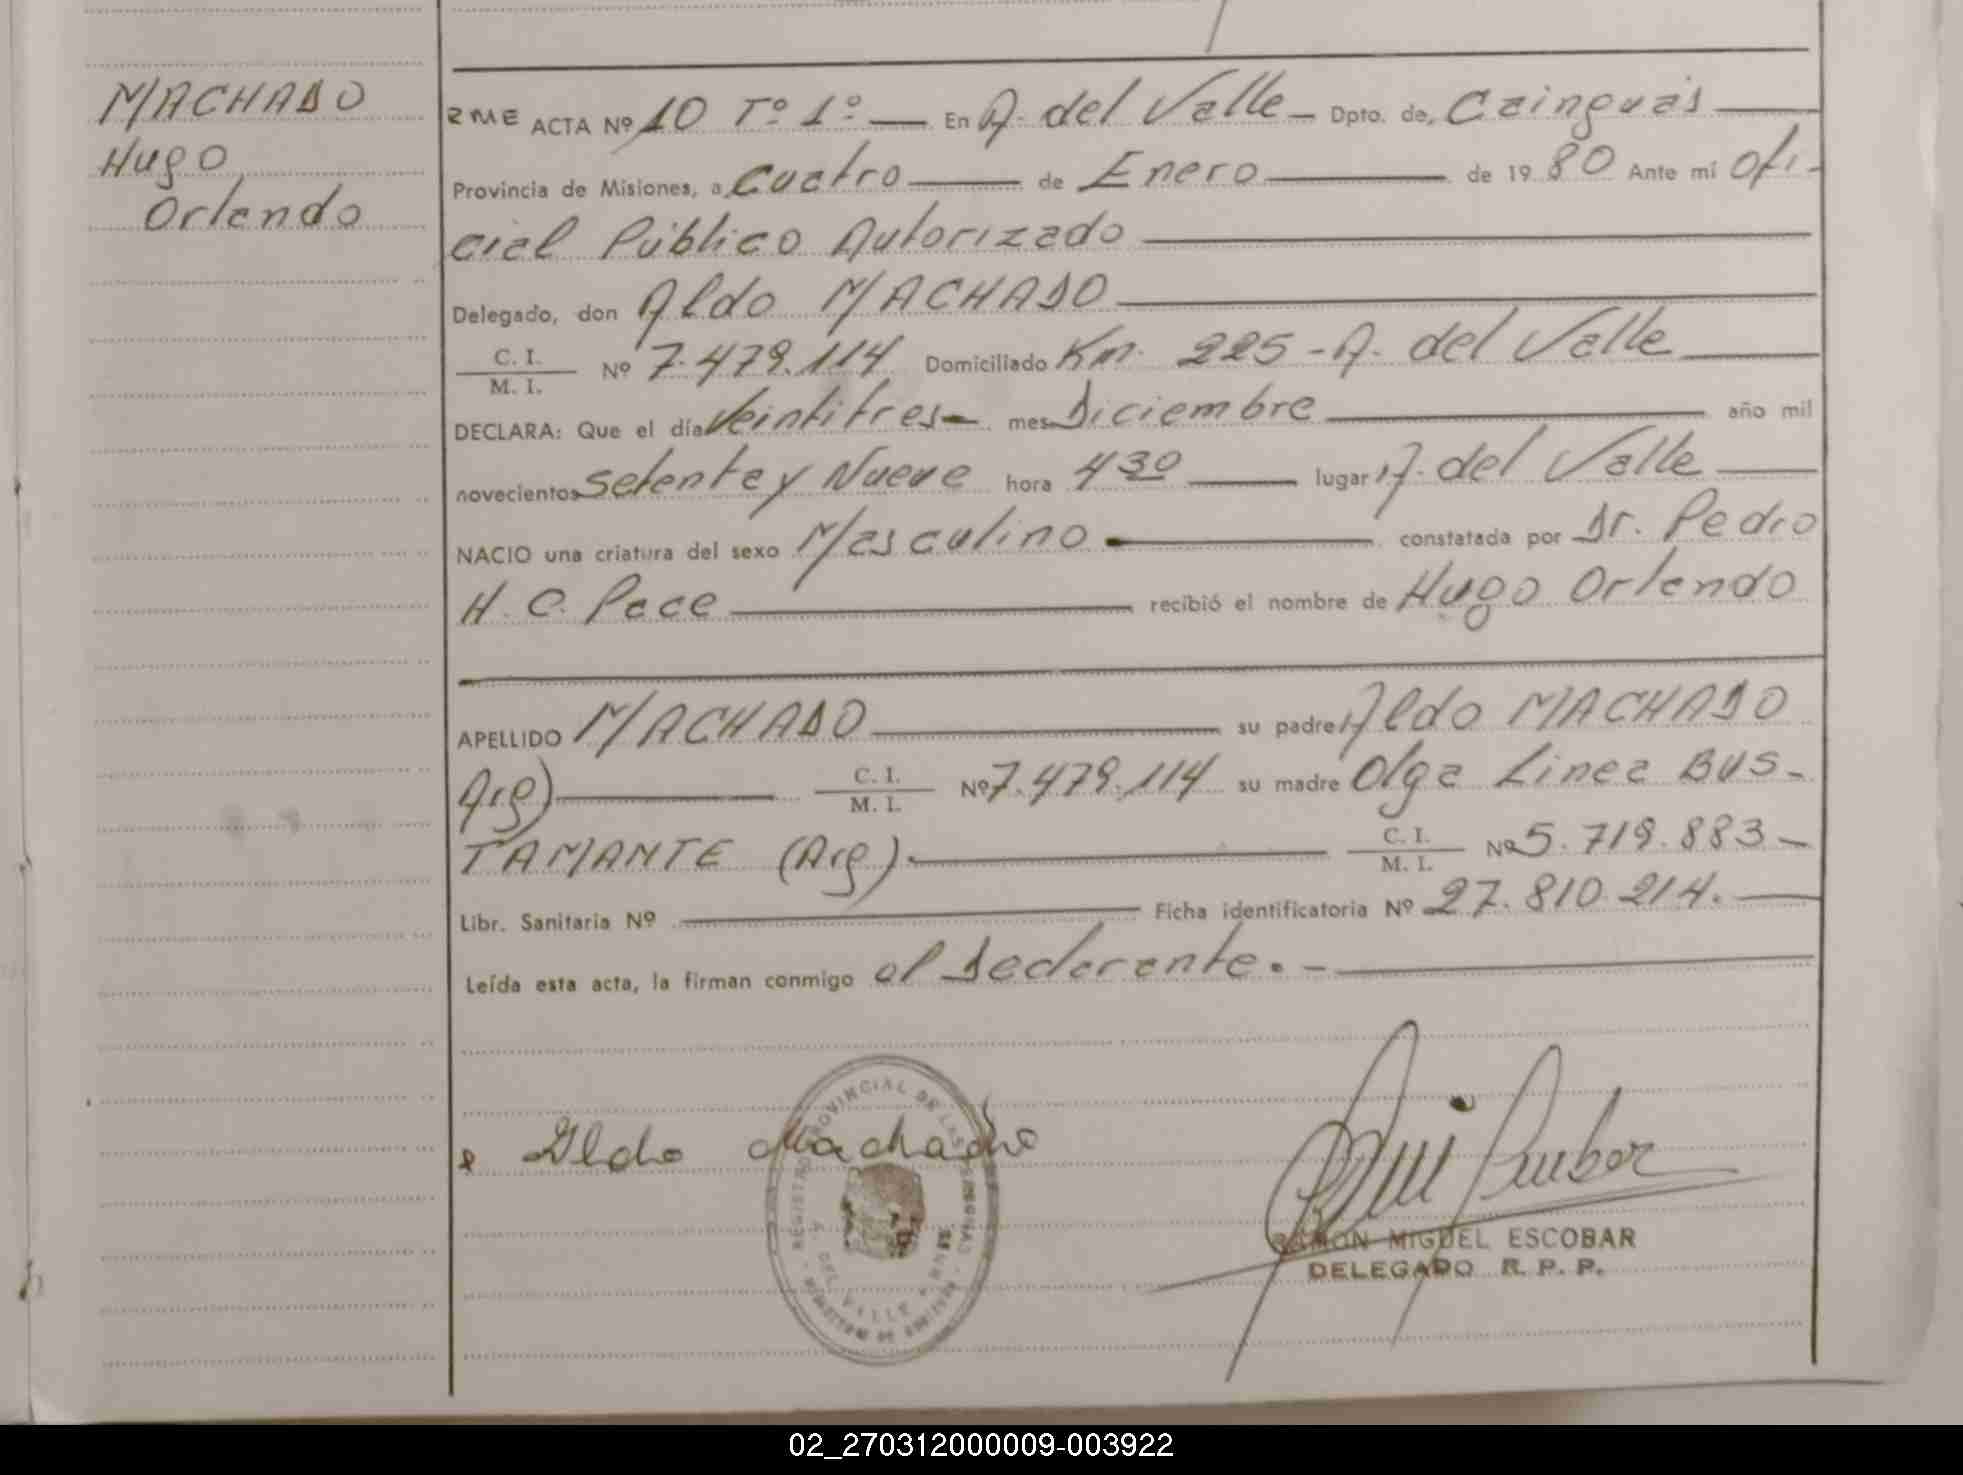 MACHADO
Hugo
Orlando
RME ACTA Nº 10 Tº 1º — En A. del Valle — Dpto. de, Cainguás
Provincia de Misiones, a cuatro — de Enero — de 1980 Ante mí Ofi-
cial Público Autorizado
Delegado, don Aldo MACHADO
C. I.
M. I. Nº 7.479.114 Domiciliado Km. 225 - A. del Valle
DECLARA: Que el día Veintitres — mes Diciembre — año mil
novecientos Setenta y Nueve hora 4 30 — lugar A. del Valle
NACIO una criatura del sexo Masculino — constatada por Dr. Pedro
H. C. Pace — recibió el nombre de Hugo Orlando
APELLIDO MACHADO — su padre Aldo MACHADO
Arg) — C. I.
M. I. Nº 7.479.114 su madre Olga Linea BUS-
TAMANTE (Arg) — C. I.
M. I. Nº 5.719.883 -
Libr. Sanitaria Nº — Ficha identificatoria Nº 27.810.214. —
Leída esta acta, la firman conmigo el declarante. -
Aldo Machado
REGISTRO PROVINCIAL DE LAS PERSONAS
A. DEL VALLE
RAMON MIGUEL ESCOBAR
DELEGADO R. P. P.
02_270312000009-003922